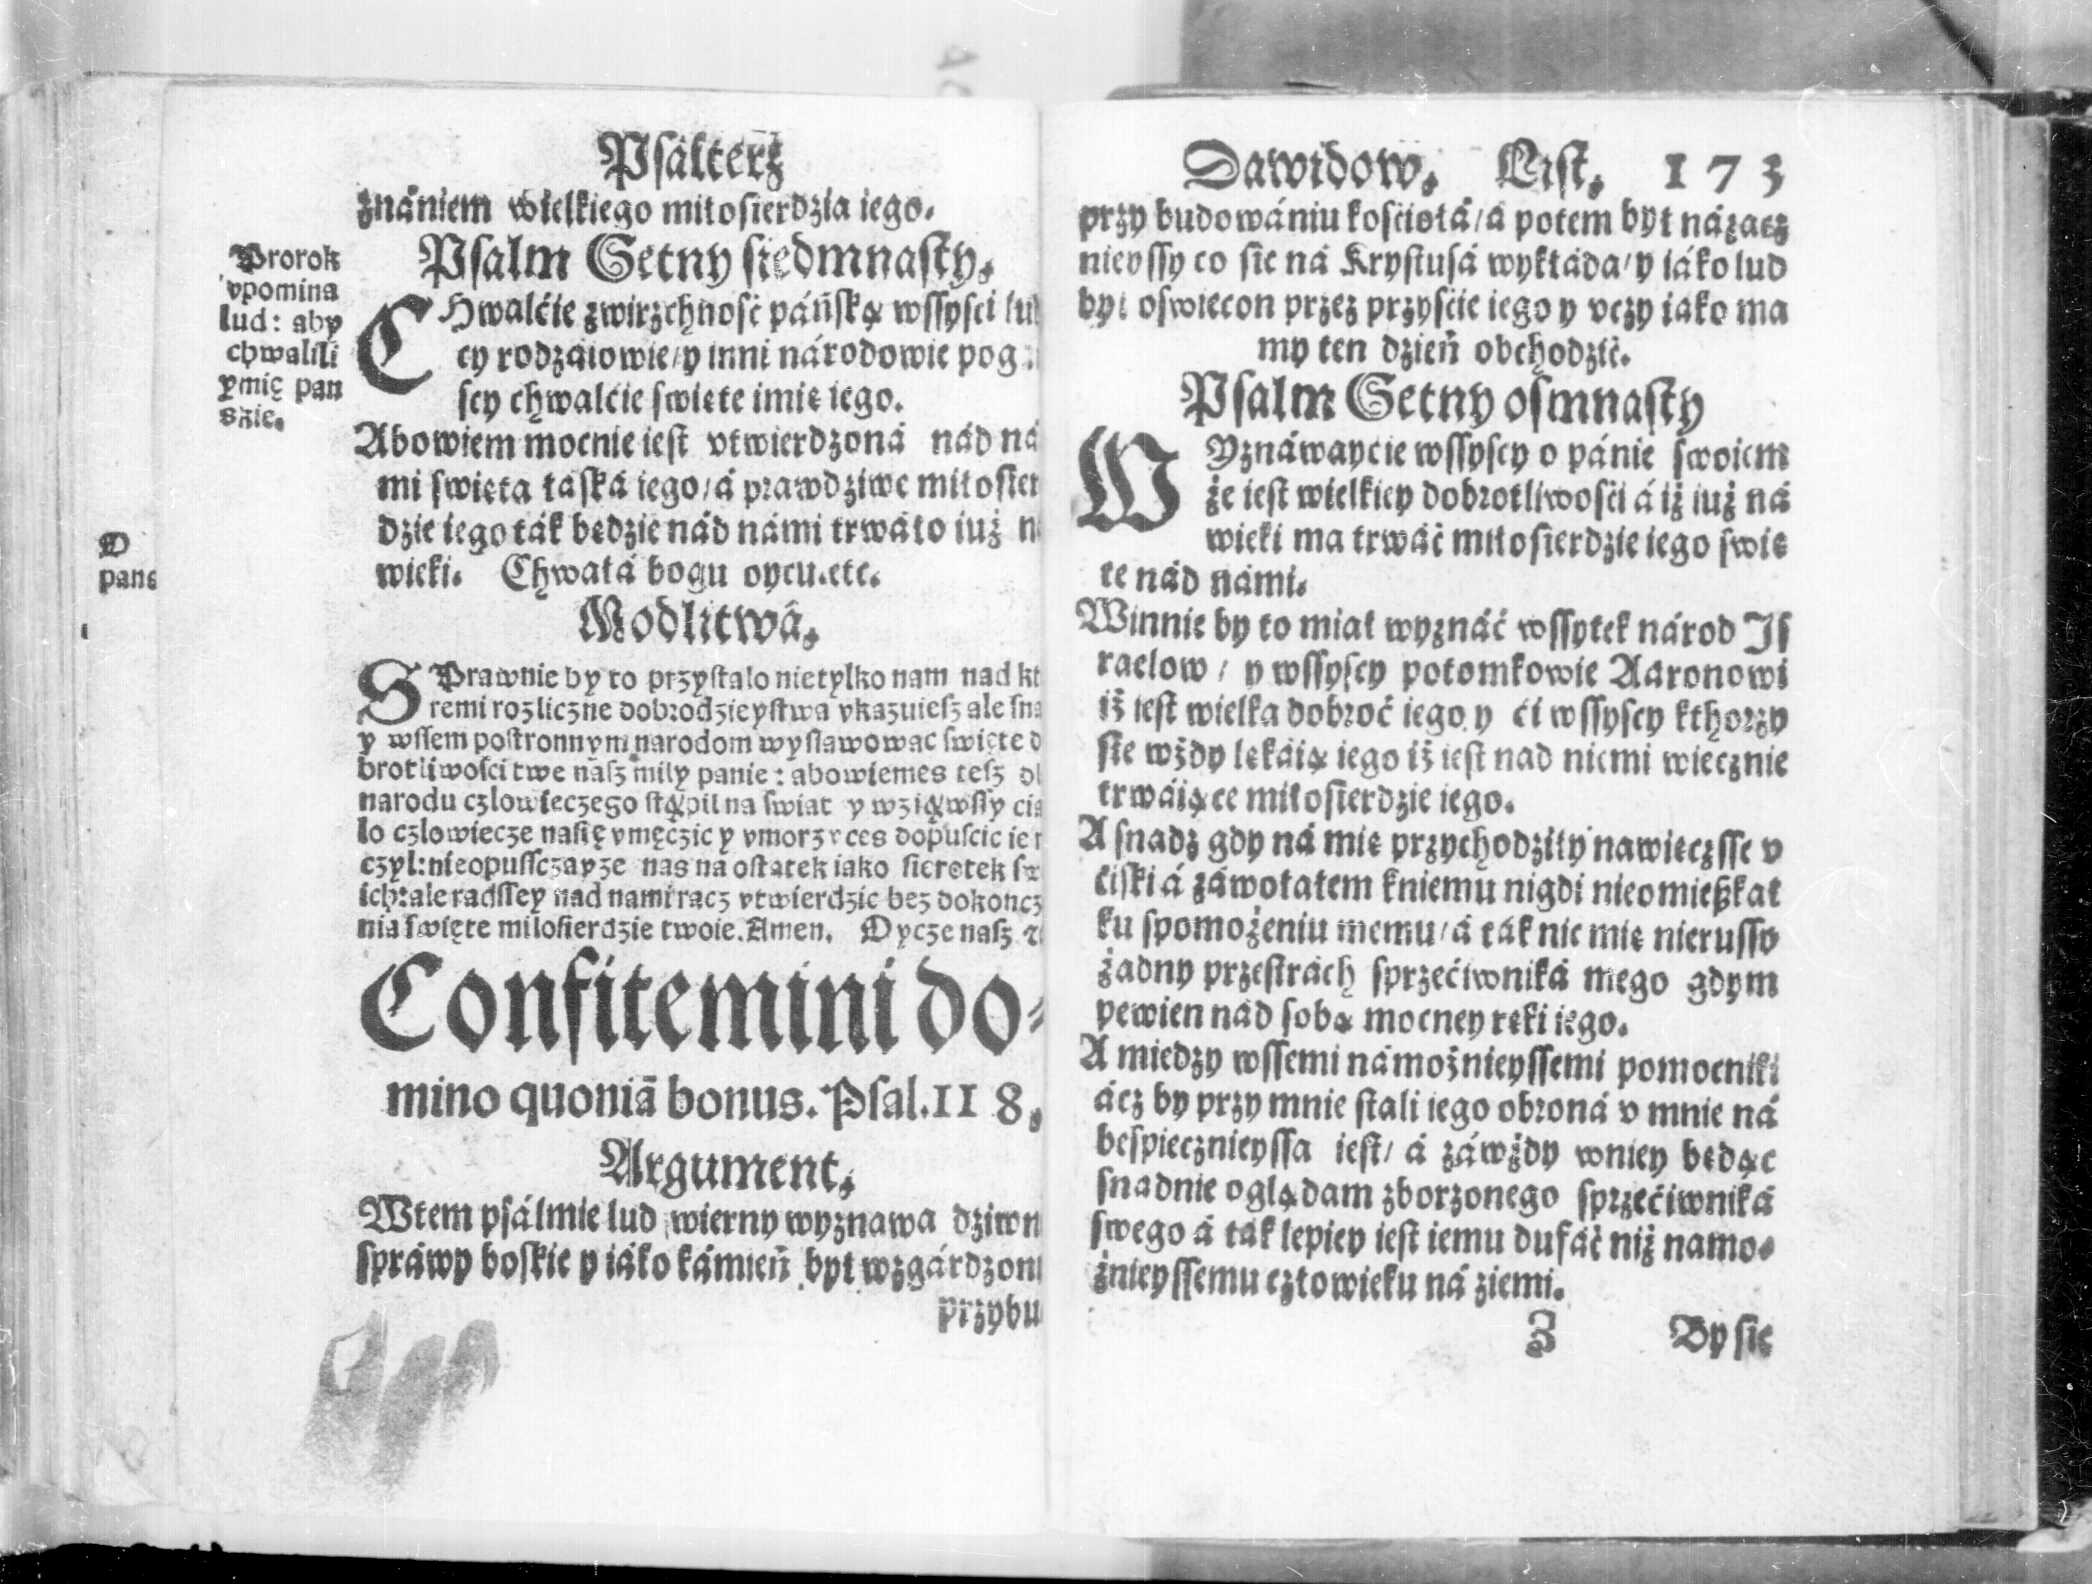 Psálterz
znániem wielkiego miłosierdzia iego.
Psalm Setny siedmnasty.
Prorok
vpomina
lud: aby
chwalili
ymię pan
skie.
CHwalćie zwirzchność páńską wssysci
cy rodzaiowie/y inni národowie
scy chwalćie swięte imię iego.
Abowiem mocnie iest vtwierdzoná nád ná
mi swięta łaská iego/á prawdziwe miłosier
dzie iego ták będzie nád námi trwáło iuż
wieki. Chwałá bogu oycu.etc.
O
pane
Modlitwá.
SPrawnie by to przystalo nietylko nam nad
remi rozliczne dobrodzieystwa vkazuiesz ale
y wssem postronnym narodom wyslawowac swięte
brotliwosci twe nasz mily panie: abowiemes tesz
narodu czlowieczego stąpil na swiat y wziąwssy
lo czlowiecze nasię vmęczic y vmorzyc es dopuscic ie
czyl:nieopussczayze nas na ostatek iako sierotek
ich:ale radssey nad nami racz vtwierdzic bez
nia swięte milosierdzie twoie.Amen. Oycze nasz
Confitemini do-
mino quoniā bonus. Psal.118.
Argument.
Wtem psálmie lud wierny wyznawa
spráwy boskie y iáko kámień był
Dawidow. List. 173
przy budowániu kościołá/á potem był názacz
nieyssy co sie ná Krystusá wykłáda/y iáko lud
był oswiecon przez przyście iego y vczy iako ma
my ten dzień obchodzić.
Psalm Setny osmnasty
WYznáwaycie wssyscy o pánie swoiem
że iest wielkiey dobrotliwości á iż iuż ná
wieki ma trwáć miłosierdzie iego swię
te nád námi.
Winnie by to miał wyznáć wssytek národ Is
raelow/ y wssyscy potomkowie Aaronowi
iż iest wielka dobroć iego y ći wssyscy kthorzy
sie wżdy lękáią iego iż iest nad niemi wiecznie
trwáiące miłosierdzie iego.
A snadz gdy ná mię przychodziły nawieczsse v
ćiski á záwołałem kniemu nigdi nieomießkał
ku spomożeniu memu/á ták nic mię nierussy
żadny przestrách sprzećiwniká mego gdym
pewien nád sobą mocney ręki iego.
A miedzy wssemi námożnieyssemi pomocniki
ácz by przy mnie stali iego obroná v mnie ná
bespiecznieyssa iest/ á záwżdy wniey będąc
snadnie oglądam zborzonego sprzećiwniká
swego á ták lepiey iest iemu dufáć niż namo-
żnieyssemu człowieku ná ziemi.
Z By się